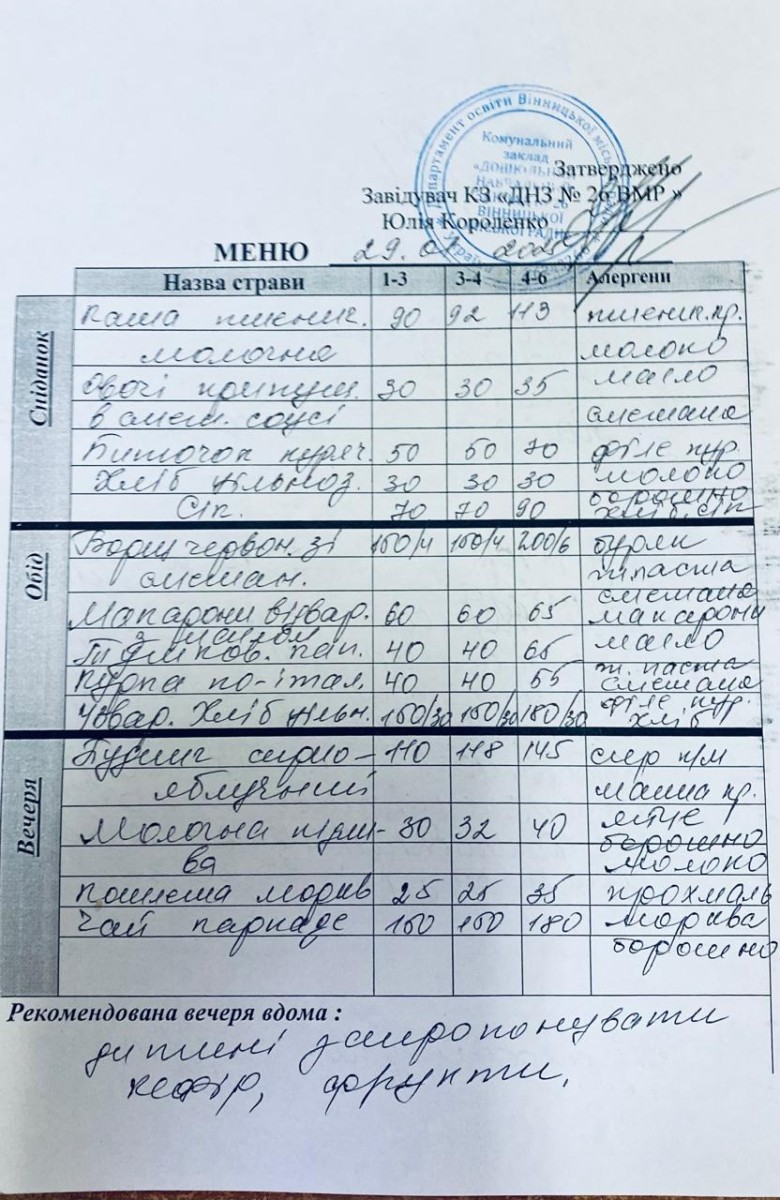 Департамент освіти Вінницької місь
Комунальний
заклад
«ДОШКІЛЬНИЙ
НАВЧАЛЬНИЙ
ВІННИЦЬКОЇ
Затверджено
Завідувач КЗ «ДНЗ № 26 ВМР »
Юлія Короленко
МЕНЮ 29.01 2025
Назва страви 1-3 3-4 4-6 Алергени
Сніданок
Каша пшенич. 90 92 113 пшенич.кр.
молочна молоко
Овочі припущ. 30 30 35 масло
в смет. соусі сметана
Биточок куряч. 50 50 70 філе кур.
Хліб цільноз. 30 30 30 молоко
борошно
Сік. 70 70 90 хліб, сік
Обід
Борщ червон. зі 150/4 150/4 200/6 буряк
сметан. т.паста
сметана
Макарони відвар. 60 60 65 макарони
з маслом
40 40 65 масло
Курка по-італ. 40 40 55 т. паста
сметана
філе кур.
Узвар. Хліб цільн. 150/30 150/30 180/30 хліб
Вечеря
Пудинг сирно- 110 118 145 сир к/м
яблучний манна кр.
Молочна підли- 30 32 40 яйце
борошно
ва молоко
25 25 35 крохмаль
Чай каркаде 150 150 180 морква
борошно
Рекомендована вечеря вдома :
дитині запропонувати
кефір, фрукти.